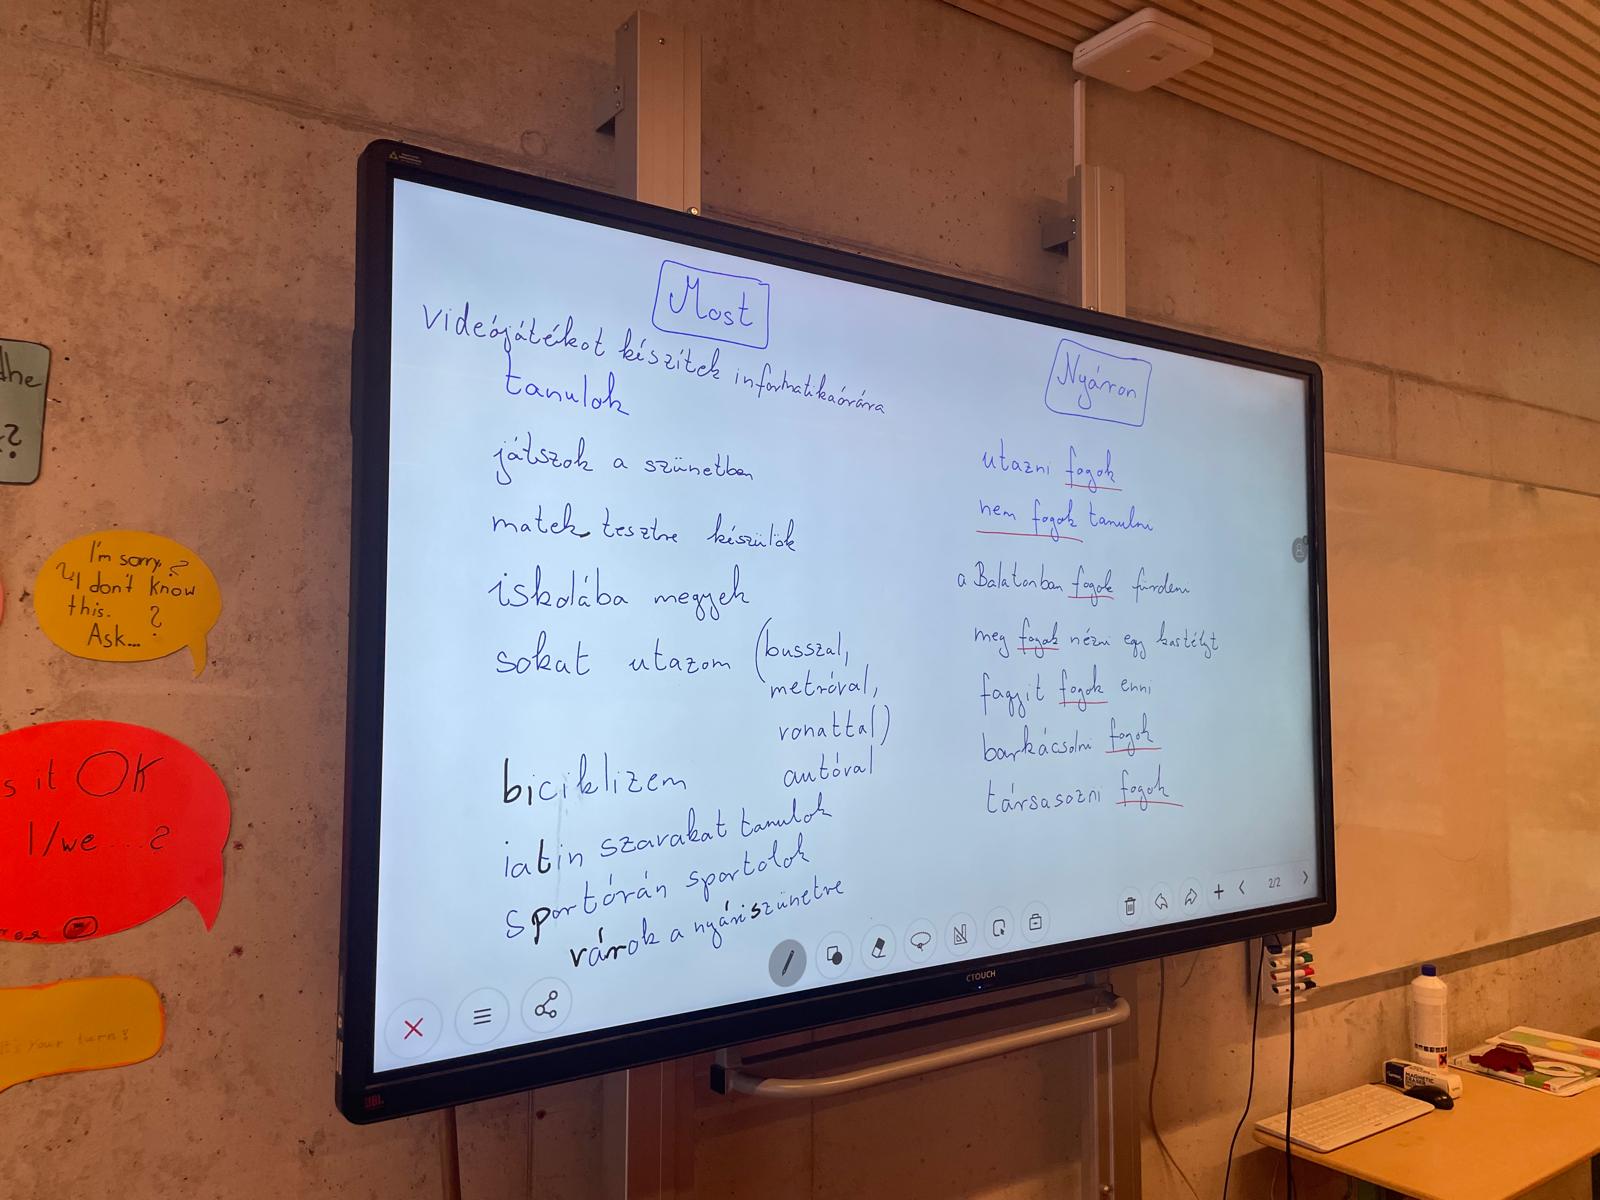 Most
videójátékot készítek informatikaórára
tanulok
játszok a szünetben
matek tesztre készülök
iskolába megyek
sokat utazom (busszal,
metróval,
vonattal)
autóval
biciklizem
latin szavakat tanulok
sportórán sportolok
várok a nyári szünetre
Nyáron
utazni fogok
nem fogok tanulni
a Balatonban fogok fürdeni
meg fogok nézni egy kastélyt
fagyit fogok enni
barkácsolni fogok
társasozni fogok
2/2
CTOUCH
JBL
I'm sorry, ?
? I don't know
this. ?
Ask...
s it OK
I/we ... ?
It's your turn!
the
?
MAGNETIC